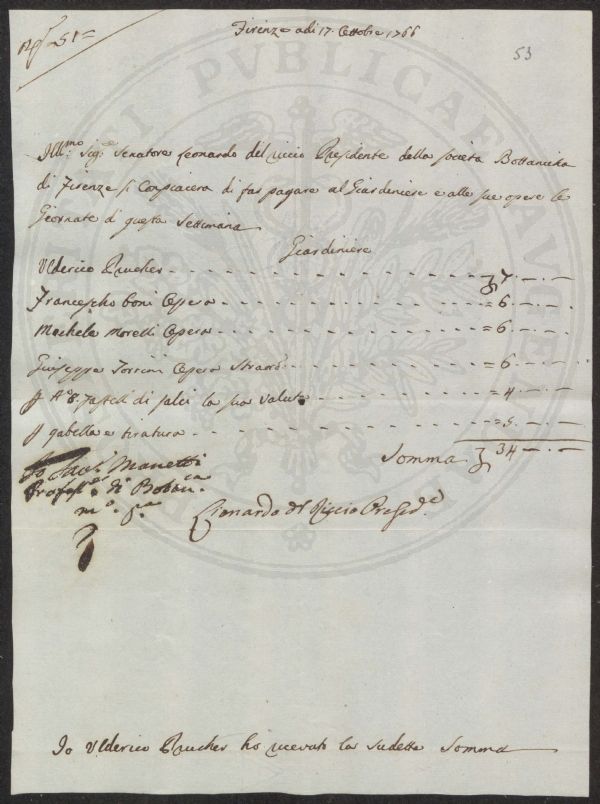 Firenze adi 17. Ottobre 1766
51=
53
Ill:mo Sig:e Senatore Leonardo del riccio Presidente della società Bottanicha
di Firenze si Conpiacera di far pagare al Giardiniere e alle sue opere le
Giornate di questa Settimana
Giardiniere
Ulderico Prucher 7
Francescho Boni Opera = 6
Michele Moretti Opera = 6
Giuseppe Torrini Opera = 6
p N:o 8. fastell di salci la sua valuta = 4
p gabella e tiratura = 5
Somma 34
Io Manetti
Profess:e di Botan:ca
m:o p:a
Lionardo del Riccio Presid:e
Io Ulderico Prucher ho ricevuto la sudetta Somma
PUBLICAE